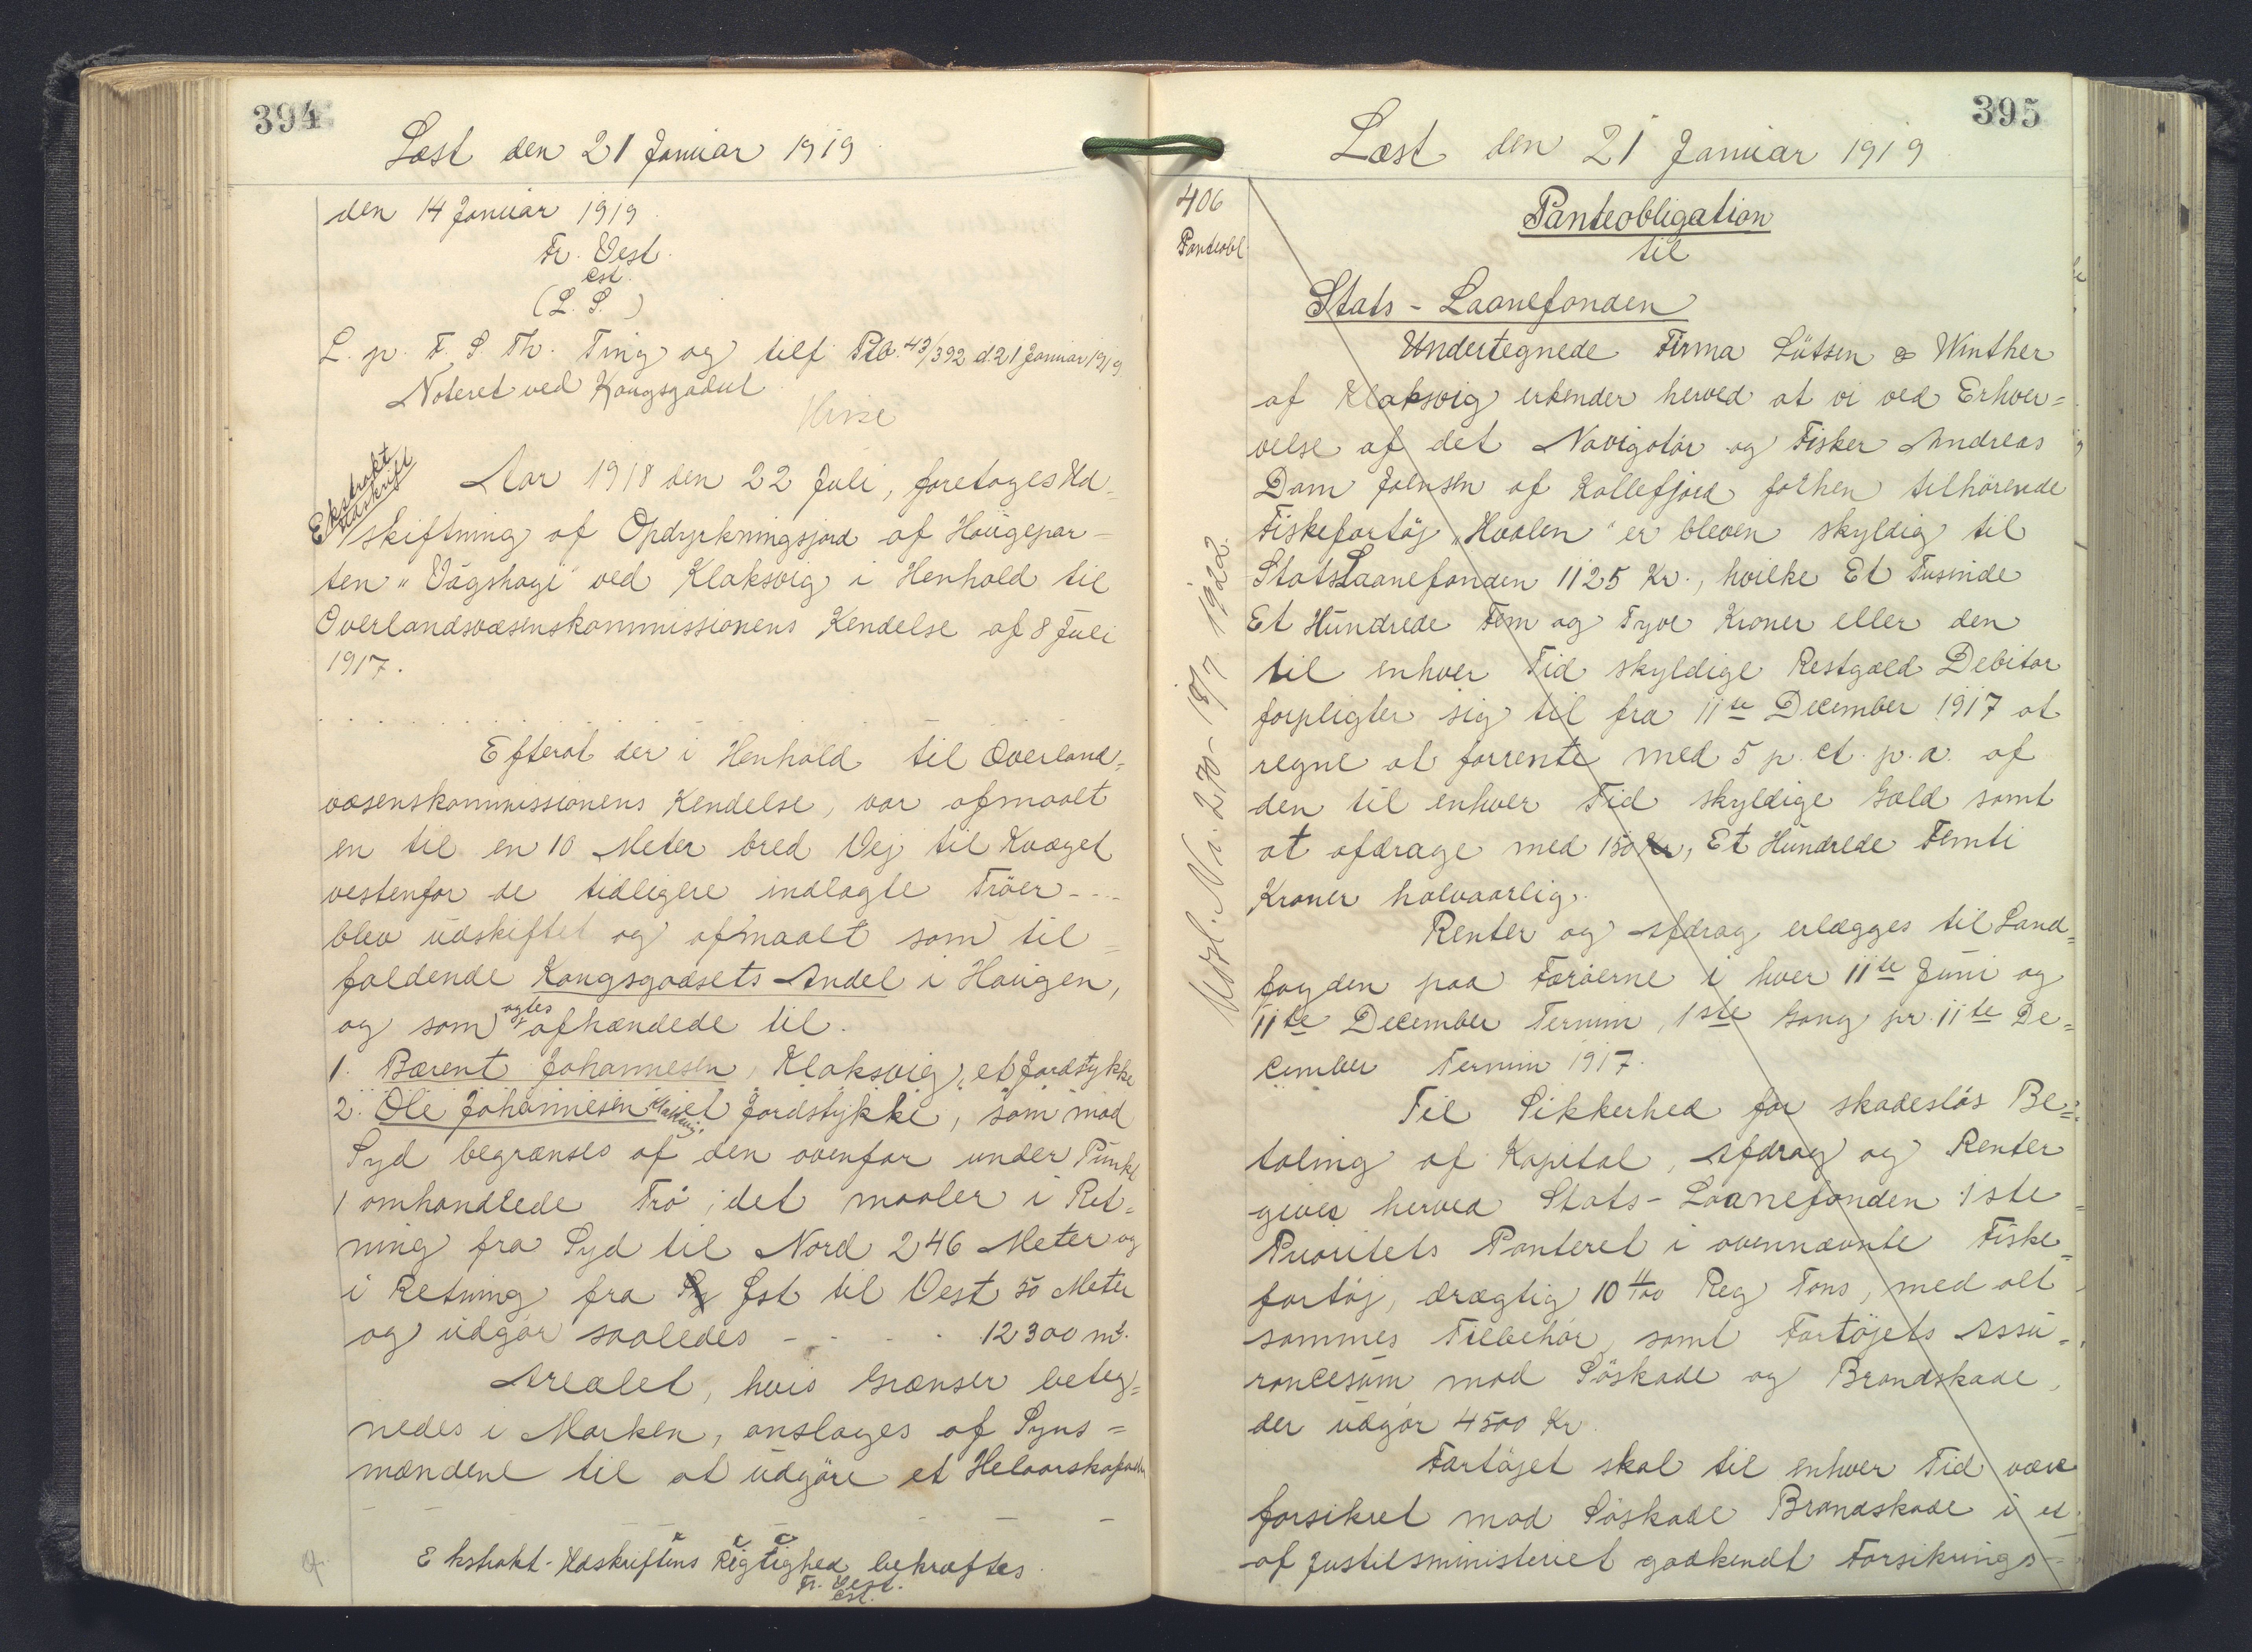 394
Læst den 21 Januar 1919
den 14 Januar 1919
Fr. Vest
cst.
(L. S.)
L. p. F. S Th. Ting og tilf. Ptb. 43/392 d. 21 Januar 1919
Noteret ved Kongsgodset
Ekstrakt
Udskrift
Aar 1918 den 22 Juli, foretoges Ud-
skiftning af Opdyrkningsjord af Haugepar-
ten "Vágshagi" ved Klaksvig i Henhold til
Overlandsvæsenskommissionens Kendelse af 8 Juli
1917.
Efterat der i Henhold til Overland=
væsenskommissionens Kendelse, var afmaalt
en til en 10 Meter bred Vej til Kvæget
vestenfor de tidligere indlagte Tröer - - -
blev udskiftet og afmaalt som til=
faldende Kongsgodsets Andel i Haugen,
og som agtes afhændede til.
1. Bærent Johannesen, Klaksvig, et Jordstykke
2. Ole Johannesen Klaksvig, et Jordstykke, som mod
Syd begrænses af den ovenfor under Punkt
1 omhandlede Trö; det maaler i Ret=
ning fra Syd til Nord 246 Meter og
i Retning fra Sy Öst til Vest 50 Meter
og udgör saaledes - - - - 12300 m².
Arealet, hvis Grænser beteg=
nedes i Marken, anslages af Syns=
mændene til at udgöre et Helaarskofoder
Ekstrakt-Udskriftens Rigtighed bekræftes
Fr. Vest.
cst.
395
Læst den 21 Januar 1919
406
Panteobl
Panteobligation
til
Stats-Laanefonden
Undertegnede Firma Lützen & Winther
af Klaksvig erkender herved at vi ved Erhver=
velse af det Navigatör og Fisker Andreas
Dam Joensen af Kollefjord förhen tilhörende
Fiskefartöj "Hvalen" er bleven skyldig til
StatsLaanefonden 1125 Kr., hvilke Et Tusinde
Et Hundrede Fem og Tyve Kroner eller den
til enhver Tid skyldige Restgæld Debitor
forpligter sig til fra 11te December 1917 at
regne at forrente med 5 p. ct. p. a. af
den til enhver Tid skyldige Gæld samt
at afdrage med 150 Kr, Et Hundrede Femti
Kroner halvaarlig.
Renter og Afdrag erlægges til Land=
fogden paa Færöerne i hver 11te Juni og
11te December Termin, 1ste Gang pr. 11te De=
cember Termin 1917.
Til Sikkerhed for skadeslös Be=
taling af Kapital, Afdrag og Renter
gives herved Stats-Laanefonden 1ste
Prioritets Panteret i ovennævnte Fiske=
fartöj, drægtig 10 11/100 Reg Tons, med alt
sammes Tilbehör, samt Fartöjets Assu=
rancesum mod Söskade og Brandskade,
der udgör 4500 Kr.
Fartöjet skal til enhver Tid være
forsikret mod Söskade Brandskade i et
af Justitsministeriet godkendt Forsikrings=
Udsl. Nr. 270 - 18/7 1922.